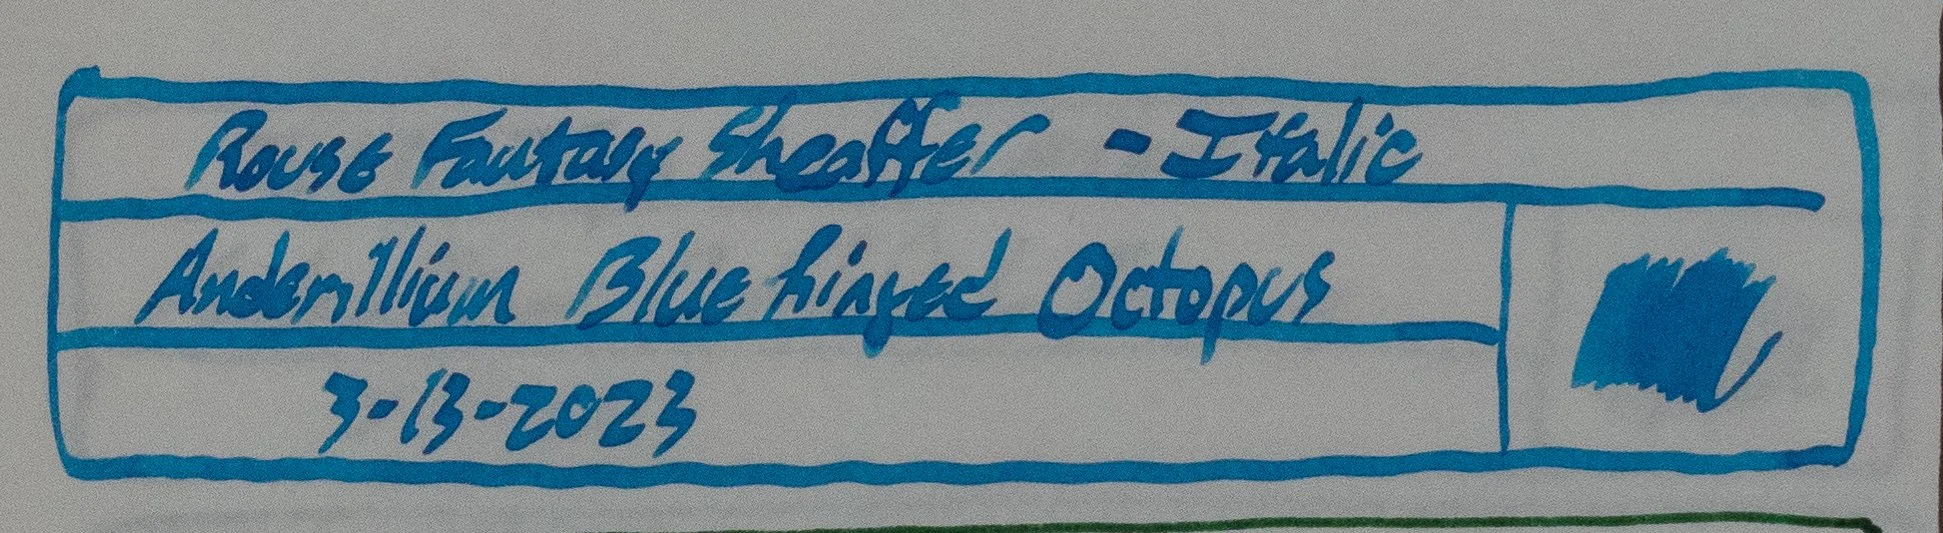 Rouse Fantasy Sheaffer - Italic
Anderillium Blue hinged Octopus
3-13-2023